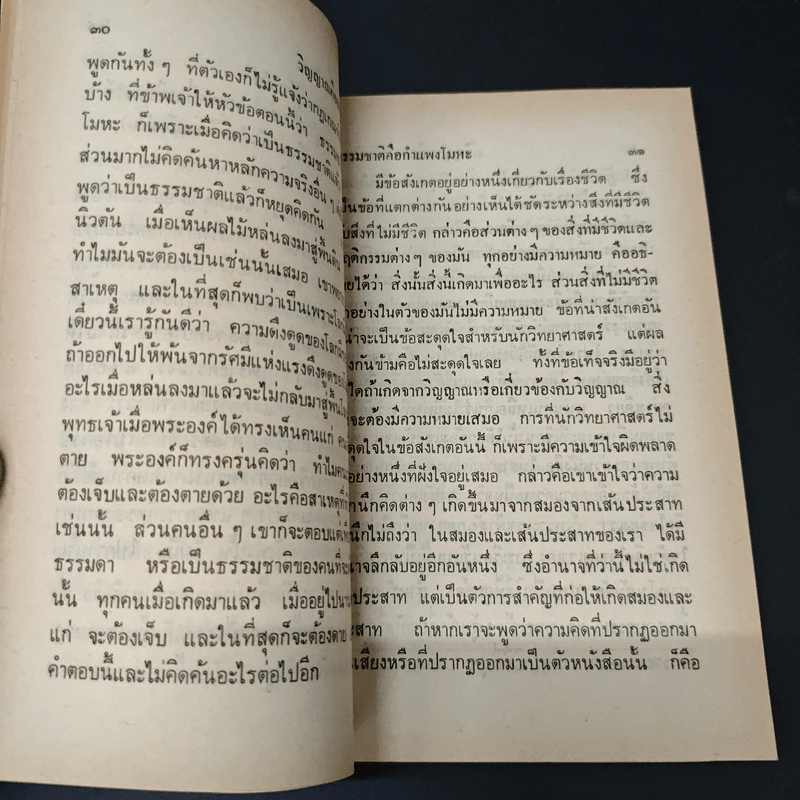 ๓๐
พูดกันทั้ง ๆ ที่ตัวเองก็ไม่รู้แจ้งว่ากฎเกณฑ์
บ้าง ที่ข้าพเจ้าให้หัวข้อตอนนี้ว่า
โมหะ ก็เพราะเมื่อคิดว่าเป็นธรรมชาติ
ส่วนมากไม่คิดค้นหาหลักความจริงอื่น
พูดว่าเป็นธรรมชาติแล้วก็หยุดคิดกัน
นิวตัน เมื่อเห็นผลไม้หล่นลงมาสู่พื้นดิน
ทำไมมันจะต้องเป็นเช่นนั้นเสมอ
สาเหตุ และในที่สุดก็พบว่าเป็นเพราะ
เดี๋ยวนี้เรารู้กันดีว่า ความดึงดูดของโลก
ถ้าออกไปให้พ้นจากรัศมีแห่งแรงดึงดูดของ
อะไรเมื่อหล่นลงมาแล้วจะไม่กลับมาสู่พื้น
พุทธเจ้าเมื่อพระองค์ได้ทรงเห็นคนแก่ คน
ตาย พระองค์ก็ทรงครุ่นคิดว่า ทำไมคน
ต้องเจ็บและต้องตายด้วย อะไรคือสาเหตุที่
เช่นนั้น ส่วนคนอื่น ๆ เขาก็จะตอบแต่
ธรรมดา หรือเป็นธรรมชาติของคนที่จะ
นั้น ทุกคนเมื่อเกิดมาแล้ว เมื่ออยู่ไปนาน
แก่ จะต้องเจ็บ และในที่สุดก็จะต้องตาย
คำตอบนี้และไม่คิดค้นอะไรต่อไปอีก
ธรรมชาติคือกำแพงโมหะ ๓๑
มีข้อสังเกตอยู่อย่างหนึ่งเกี่ยวกับเรื่องชีวิต ซึ่ง
เป็นข้อที่แตกต่างกันอย่างเห็นได้ชัดระหว่างสิ่งที่มีชีวิต
กับสิ่งที่ไม่มีชีวิต กล่าวคือส่วนต่าง ๆ ของสิ่งที่มีชีวิตและ
พฤติกรรมต่าง ๆ ของมัน ทุกอย่างมีความหมาย คืออธิ-
บายได้ว่า สิ่งนั้นสิ่งนี้เกิดมาเพื่ออะไร ส่วนสิ่งที่ไม่มีชีวิต
อย่างในตัวของมันไม่มีความหมาย ข้อที่น่าสังเกตอัน
น่าจะเป็นข้อสะดุดใจสำหรับนักวิทยาศาสตร์ แต่ผล
กันข้ามคือไม่สะดุดใจเลย ทั้งที่ข้อเท็จจริงมีอยู่ว่า
ใดถ้าเกิดจากวิญญาณหรือเกี่ยวข้องกับวิญญาณ สิ่ง
จะต้องมีความหมายเสมอ การที่นักวิทยาศาสตร์ไม่
ดุดใจในข้อสังเกตอันนี้ ก็เพราะมีความเข้าใจผิดพลาด
อย่างหนึ่งที่ฝังใจอยู่เสมอ กล่าวคือเขาเข้าใจว่าความ
นึกคิดต่าง ๆ เกิดขึ้นมาจากสมองจากเส้นประสาท
นึกไม่ถึงว่า ในสมองและเส้นประสาทของเรา ได้มี
อำนาจลึกลับอยู่อีกอันหนึ่ง ซึ่งอำนาจที่ว่านี้ไม่ใช่เกิด
ประสาท แต่เป็นตัวการสำคัญที่ก่อให้เกิดสมองและ
ประสาท ถ้าหากเราจะพูดว่าความคิดที่ปรากฏออกมา
เป็นเสียงหรือที่ปรากฏออกมาเป็นตัวหนังสือนั้น ก็คือ